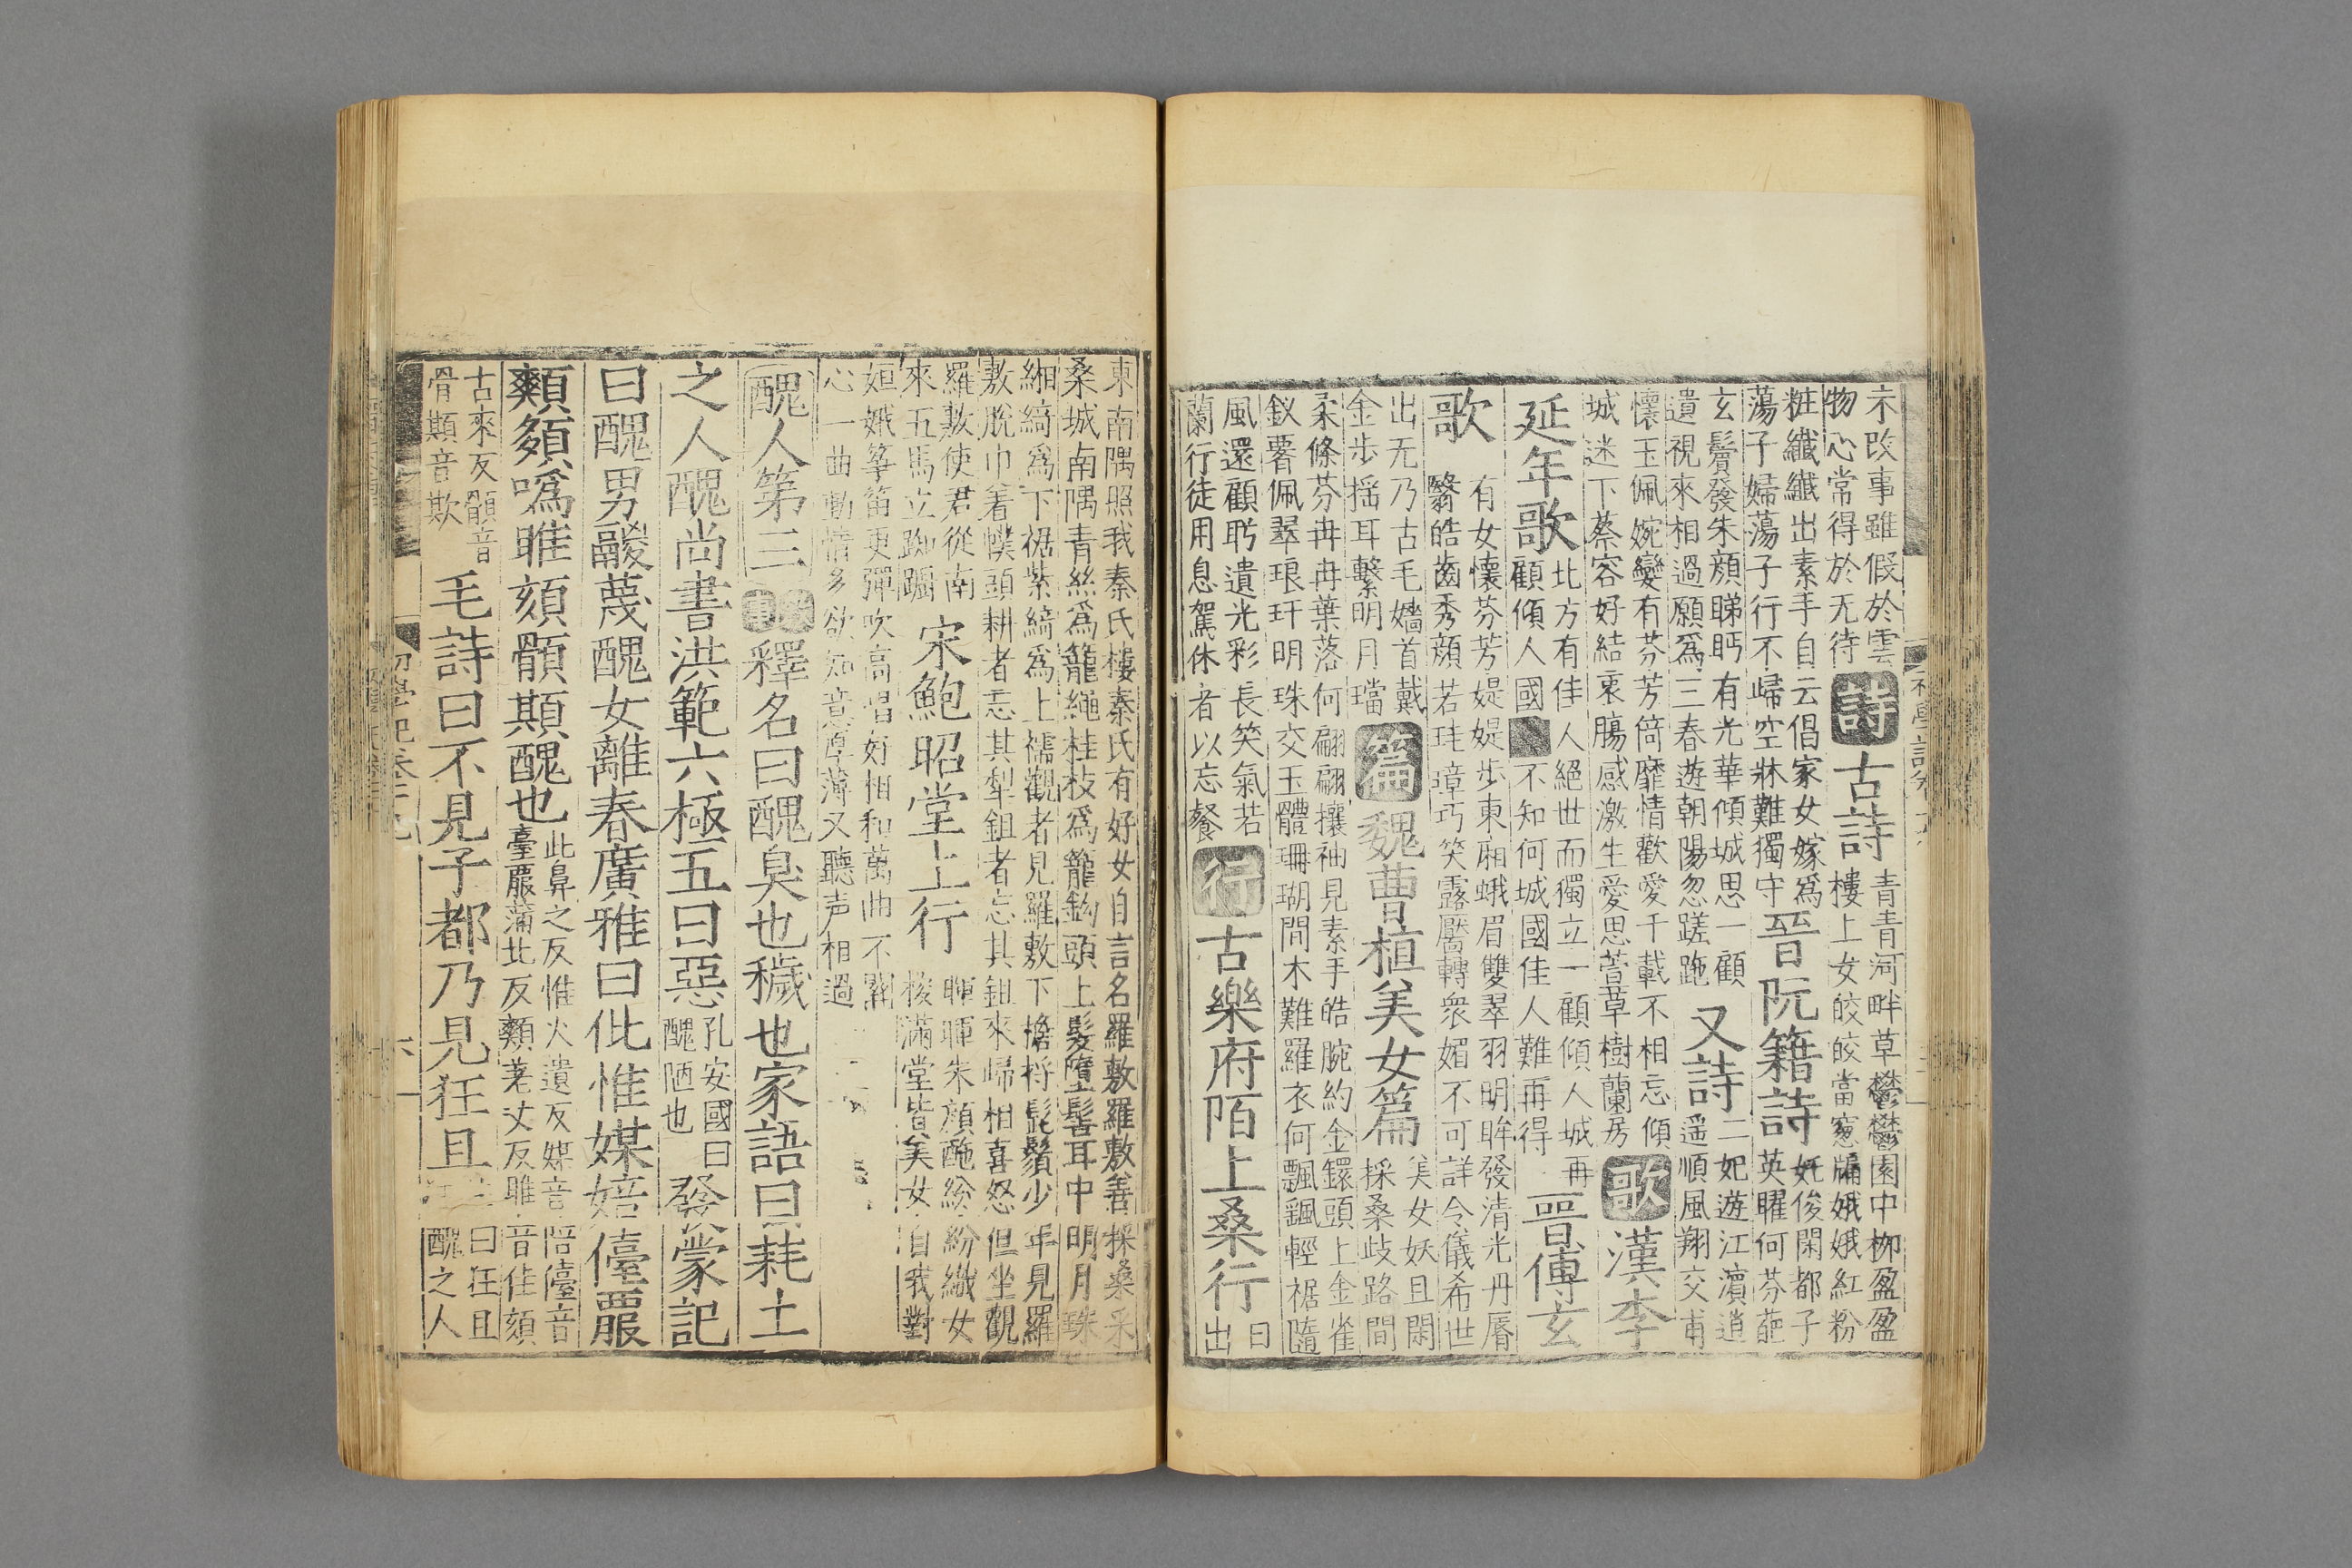 未改事雖假於雲
物心常得於无待
詩古詩
青青河畔草鬱鬱園中栁盈盈
樓上女皎皎當窻牖娥娥紅粉
粧纖纖出素手自云倡家女嫁爲
蕩子婦蕩子行不歸空牀難獨守
晉阮籍詩
妖俊閑都子
英曜何芬葩
玄鬢發朱顔睇眄有光華傾城思一顧
遺視來相過願爲三春遊朝陽忽蹉跎
又詩
二妃遊江濱逍
遥順風翔交甫
懷玉佩婉孌有芬芳猗靡情歡愛千載不相忘傾
城迷下蔡容好結衷膓感激生愛思萱草樹蘭房
歌漢李
延年歌
北方有佳人絕世而獨立一顧傾人城再
顧傾人國不知何城國佳人難再得
晉傅玄
歌
有女懷芬芳媞媞步東廂蛾眉雙翠羽明眸發清光丹脣
翳皓齒秀顔若珪璋巧笑露靨轉衆媚不可詳令儀希世
出无乃古毛嬙首戴
金步揺耳繫明月璫
篇魏曹植美女篇
美女妖且閑
採桑歧路間
柔條芬冉冉葉落何翩翩攘袖見素手皓腕約金鐶頭上金雀
釵署佩翠琅玕明珠交玉體珊瑚間木難羅衣何飄颻輕裾隨
風還顧眄遺光彩長笑氣若
蘭行徒用息駕休者以忘餐
行古樂府陌上桑行
日
出
東南隅照我秦氏樓秦氏有好女自言名羅敷羅敷善採桑采
桑城南隅青絲爲籠繩桂枝爲籠鈎頭上髮墮髻耳中明月珠
緗綺爲下裾紫綺爲上襦觀者見羅敷下檐捋髭鬚少年見羅
敷脫巾着幞頭耕者忘其犁鉏者忘其鉏來歸相喜怒但坐觀
羅敷使君從南
來五馬立踟躕
宋鮑昭堂上行
暉暉朱顔酡紛紛織女
梭滿堂皆美女自我對
姮娥筝笛更彈吹高唱好相和萬曲不關
心一曲動情多欲知意厚薄又聽声相過
醜人第三
釋名曰醜臭也穢也家語曰耗土
之人醜尚書洪範六極五曰惡
孔安國曰
醜陋也
發蒙記
曰醜男䶪䕾醜女離春廣雅曰仳惟媒婄儓䙝
顡頞噅睢頦顝䫏醜也
此鼻之反惟火遺反媒音
音陪儓音
臺䙝蒲北反顡荖丈反睢音隹頦
古來反顝音
骨䫏音欺
毛詩曰不見子都乃見狂且
曰狂且
醜之人